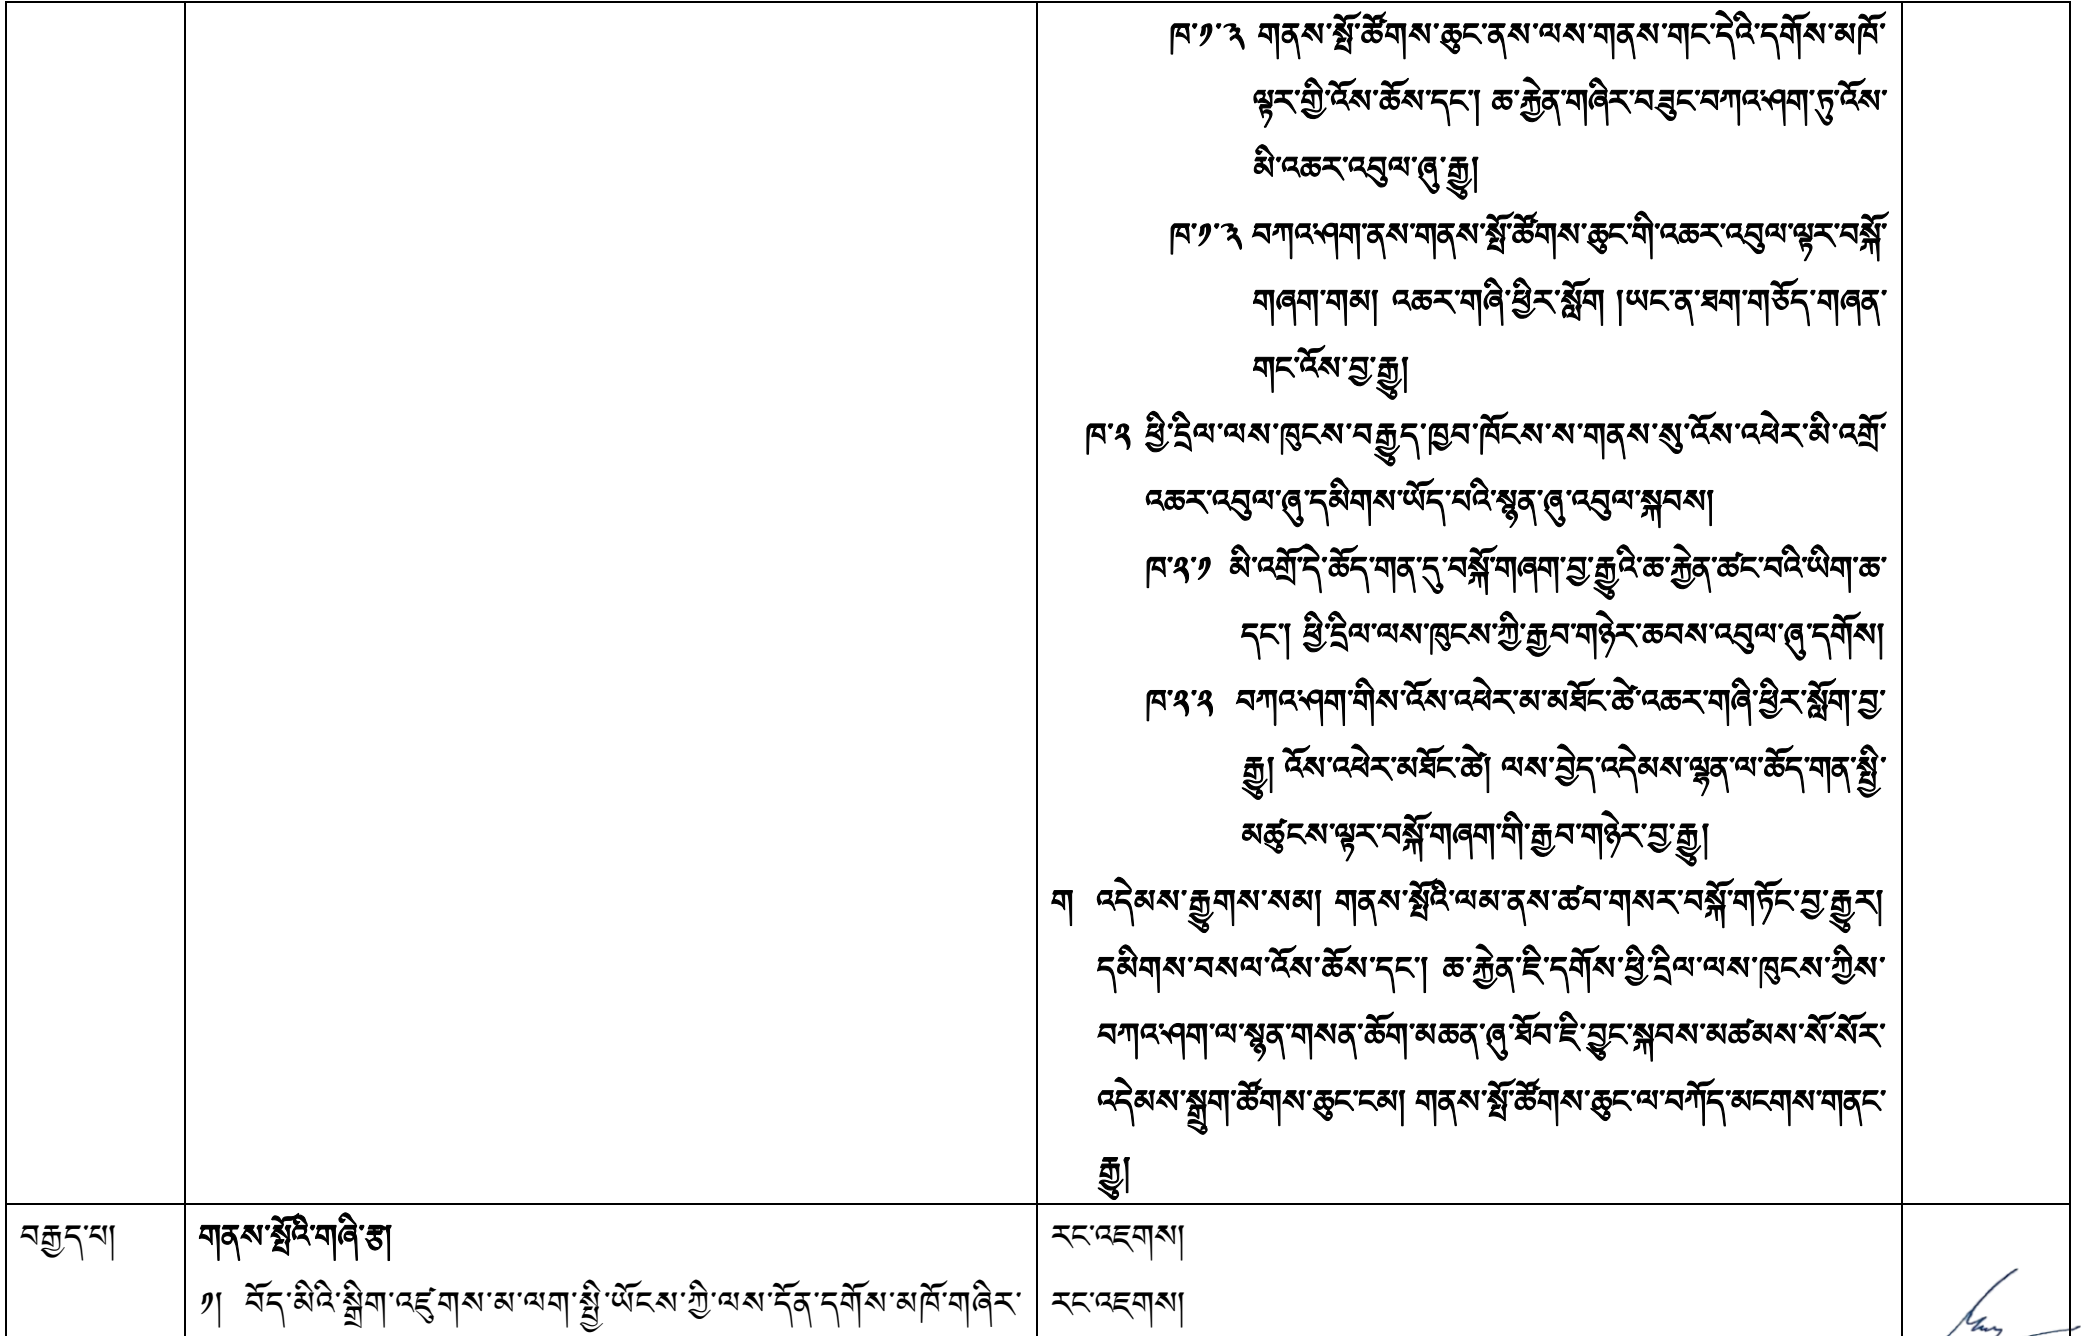 ཁ་༡་༢ གནས་སྤོ་ཚོགས་ཆུང་ནས་ལས་གནས་གང་དེའི་དགོས་མཁོ་
ལྟར་གྱི་འོས་ཆོས་དང་། ཆ་རྐྱེན་གཞིར་བཟུང་བཀའ་ཤག་ཏུ་འོས་
མི་འཆར་འབུལ་ཞུ་རྒྱུ།
ཁ་༡་༣ བཀའ་ཤག་ནས་གནས་སྤོ་ཚོགས་ཆུང་གི་འཆར་འབུལ་ལྟར་བསྐོ་
གཞག་གམ། འཆར་གཞི་ཕྱིར་སློག །ཡང་ན་ཐག་གཅོད་གཞན་
གང་འོས་བྱ་རྒྱུ།
ཁ་༢ ཕྱི་དྲིལ་ལས་ཁུངས་བརྒྱུད་ཁྱབ་ཁོངས་ས་གནས་སུ་འོས་འཕེར་མི་འགྲོ་
འཆར་འབུལ་ཞུ་དམིགས་ཡོད་པའི་སྙན་ཞུ་འབུལ་སྐབས།
ཁ་༢་༡ མི་འགྲོ་དེ་ཆོད་གན་དུ་བསྐོ་གཞག་བྱ་རྒྱུའི་ཆ་རྐྱེན་ཚང་བའི་ཡིག་ཆ་
དང་། ཕྱི་དྲིལ་ལས་ཁུངས་ཀྱི་རྒྱབ་གཉེར་ཆབས་འབུལ་ཞུ་དགོས།
ཁ་༢་༢ བཀའ་ཤག་གིས་འོས་འཕེར་མ་མཐོང་ཚེ་འཆར་གཞི་ཕྱིར་སློག་བྱ་
རྒྱུ། འོས་འཕེར་མཐོང་ཚེ། ལས་བྱེད་འདེམས་ལྷན་ལ་ཆོད་གན་སྤྱི་
མཚུངས་ལྟར་བསྐོ་གཞག་གི་རྒྱབ་གཉེར་བྱ་རྒྱུ།
ག འདེམས་རྒྱུགས་སམ། གནས་སྤོའི་ལམ་ནས་ཚབ་གསར་བསྐོ་གཏོང་བྱ་རྒྱུར།
དམིགས་བསལ་འོས་ཆོས་དང་། ཆ་རྐྱེན་ཇི་དགོས་ཕྱི་དྲིལ་ལས་ཁུངས་ཀྱིས་
བཀའ་ཤག་ལ་སྙན་གསན་ཆོག་མཆན་ཞུ་ཐོབ་ཇི་བྱུང་སྐབས་མཚམས་སོ་སོར་
འདེམས་སྒྲུག་ཚོགས་ཆུང་ངམ། གནས་སྤོ་ཚོགས་ཆུང་ལ་བཀོད་མངགས་གནང་
རྒྱུ།
བརྒྱད་པ། གནས་སྤོའི་གཞི་རྩ། རང་འཇགས།
༡། བོད་མིའི་སྒྲིག་འཛུགས་མ་ལག་སྤྱི་ཡོངས་ཀྱི་ལས་དོན་དགོས་མཁོ་གཞིར་ རང་འཇགས།